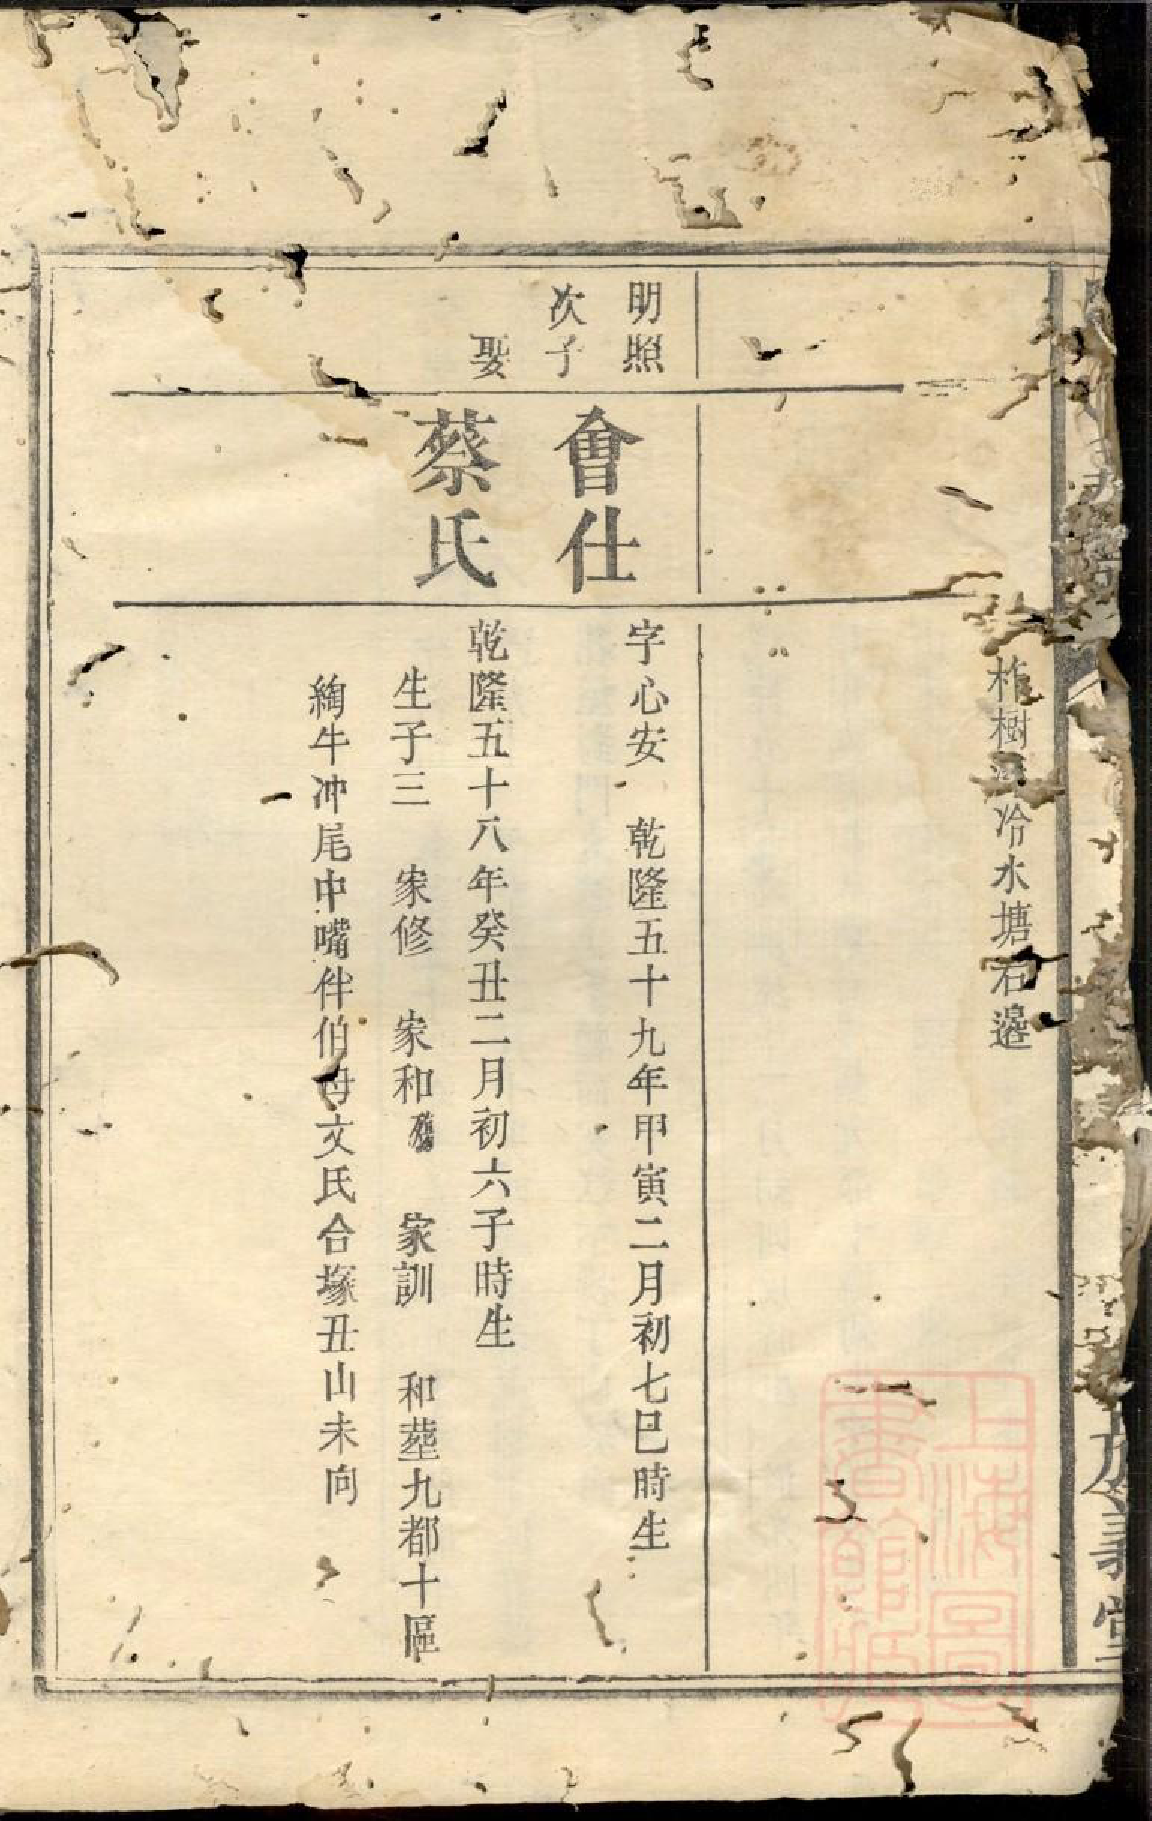 柞樹
冷水塘右邊
明照
次子
會仕
字心安 乾隆五十九年甲寅二月初七巳時生
娶
蔡氏
乾隆五十八年癸丑二月初六子時生
生子三 家修 家和 家訓 和塟九都十區
絢牛冲尾中嘴伴伯母文氏合塚丑山未向
義堂
上海圖
書館藏